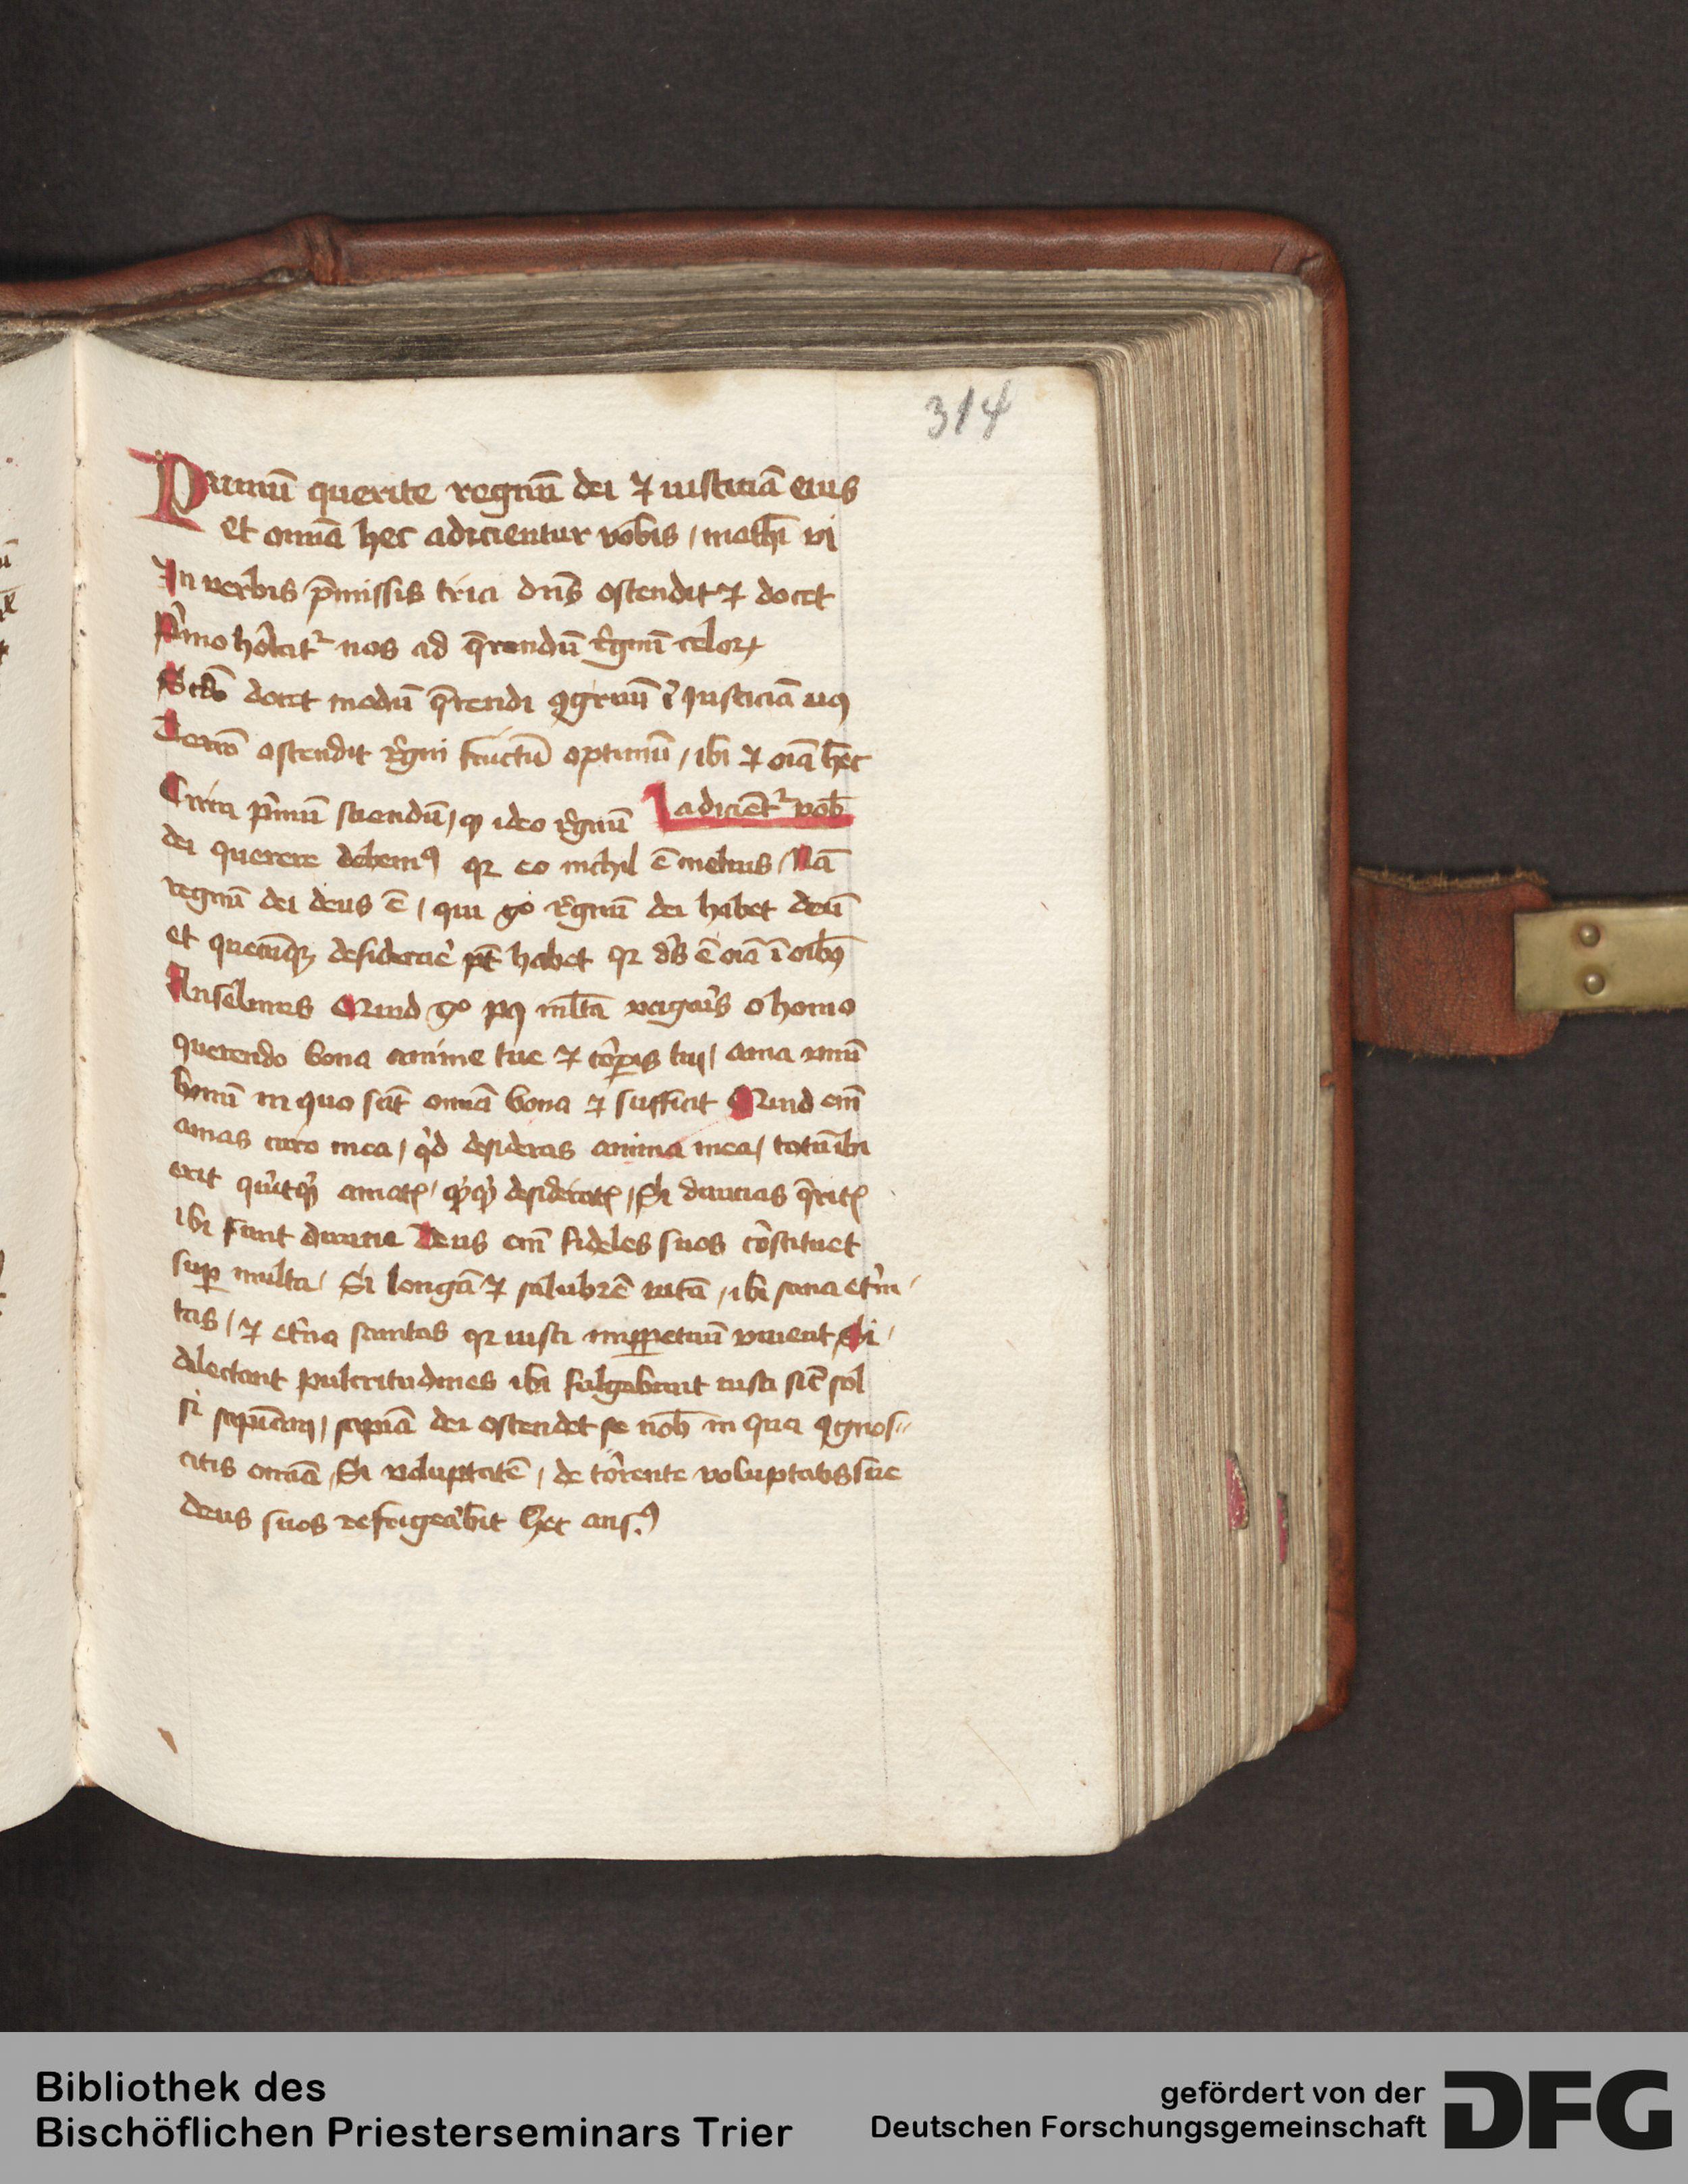 314
Primū querite regnū dei ⁊ iusticiā eius
et omīa hec adicientur vobis / mathī vi
In verbis p̄missis tria dn̄s ostendit ⁊ docet
P̾mo hortat᷑ nos ad q̄rendū r̾gnū celoꝝ
Scd̄o docet modū q̄rendi ꝯgruū ī Iusticiā eiꝰ
Tercō ostendit r̾gni fructū optimū / ibi ⁊ oīa hec
Circa p̾mū sciendū / ꝙ ideo r̾gnū adiciēt᷑ vob̄
dei querere debemꝰ qꝛ eo nichil ē melius / Nā
regnū dei deus ē / qui go r̾gnū dei habet deū
et quecūqꝫ desiderare pt̄ habet qꝛ ds̄ ē oīa ī oībꝰ
Anselmus Quid go pꝫ ml̄ta vagar̾s o homo
querendo bona anime tue ⁊ corꝑis tui / ama vnū
bonū in quo sūt omīa bona ⁊ sufficit Quid em̄
amas caro mea / q̾d desideras anima mea / totū ibi
erit amatꝭ desideratꝭ / Si diuicias q̄ritꝭ
ibi sunt diuicie Deus em̄ fideles suos cōstituet
suꝑ multa / Si longā ⁊ salubrē vitā / ibi sana et̾ni
tas / ⁊ et̾na sanitas qꝛ iusti imꝑpetuū viuent Si
delectant pulcritudines ibi fulgebunt iusti sic̄ sol
si sapiēcia / sapīa dei ostendet se nob̄ in qua ꝯgnos
citis omīa / Si voluptatē / de torrente voluptatis sue
deus suos refrigerabit Hec ansꝰ
Bibliothek des
Bischöflichen Priesterseminars Trier
gefördert von der
Deutschen Forschungsgemeinschaft
DFG